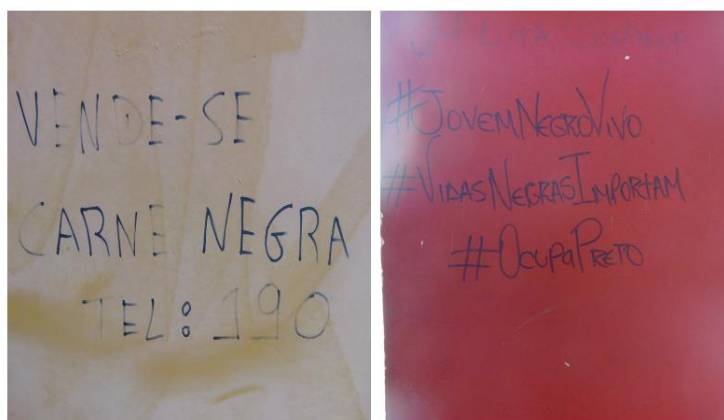 VENDE-SE
CARNE NEGRA
TEL: 190
#JOVEMNEGROVIVO
#VIDASNEGRASIMPORTAM
#OCUPAPRETO